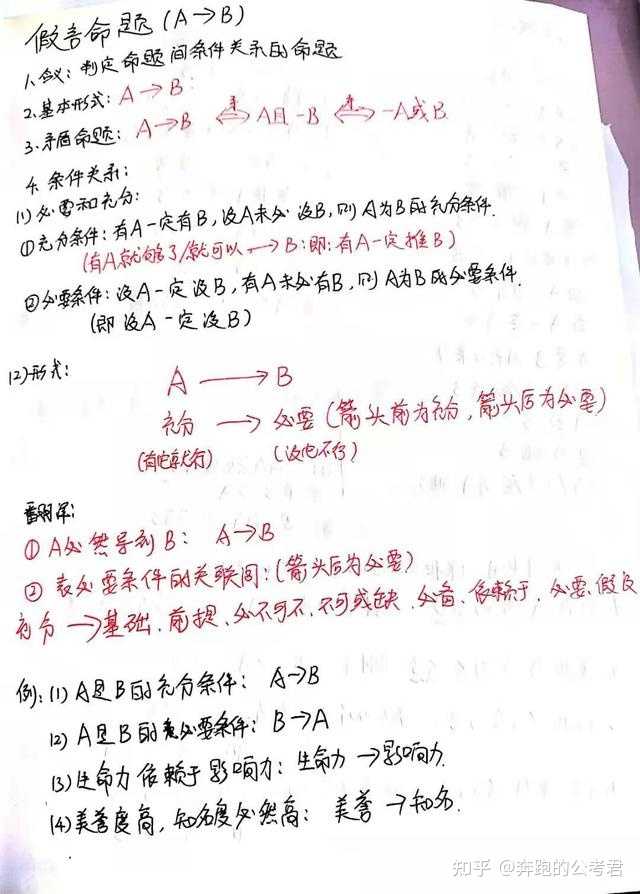 假言命题(A→B)
1.含义:判定命题间条件关系的命题
2.基本形式:A→B
3.矛盾命题:A→B ⟺ A且-B ⟺ -A或B
4.条件关系:
(1)必要和充分:
①充分条件:有A一定有B,没A未必没B,则A为B的充分条件.
(有A就够了/就可以→B:即:有A一定推B)
②必要条件:没A一定没B,有A未必有B,则A为B的必要条件.
(即没A一定没B)
(2)形式:
A→B
充分→必要(箭头前为充分,箭头后为必要)
(有它就行) (没它不行)
翻译:
①A必然导致B:A→B
②表必要条件的关联词:(箭头后为必要)
充分→基础.前提.必不可不.不可或缺.必备.依赖于.必要.假设
例:(1)A是B的充分条件:A→B
(2)A是B的必要条件:B→A
(3)生命力依赖于影响力:生命力→影响力.
(4)美誉度高,知名度必然高:美誉→知名.
知乎 @奔跑的公考君